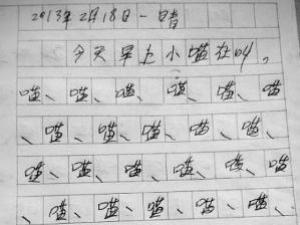 2013年2月18日 一 晴
今天早上小喵在叫。
喵、喵、喵、喵、喵、喵
、喵、喵、喵、喵、喵、
喵、喵、喵、喵、喵、喵
、喵、喵、喵、喵、喵、